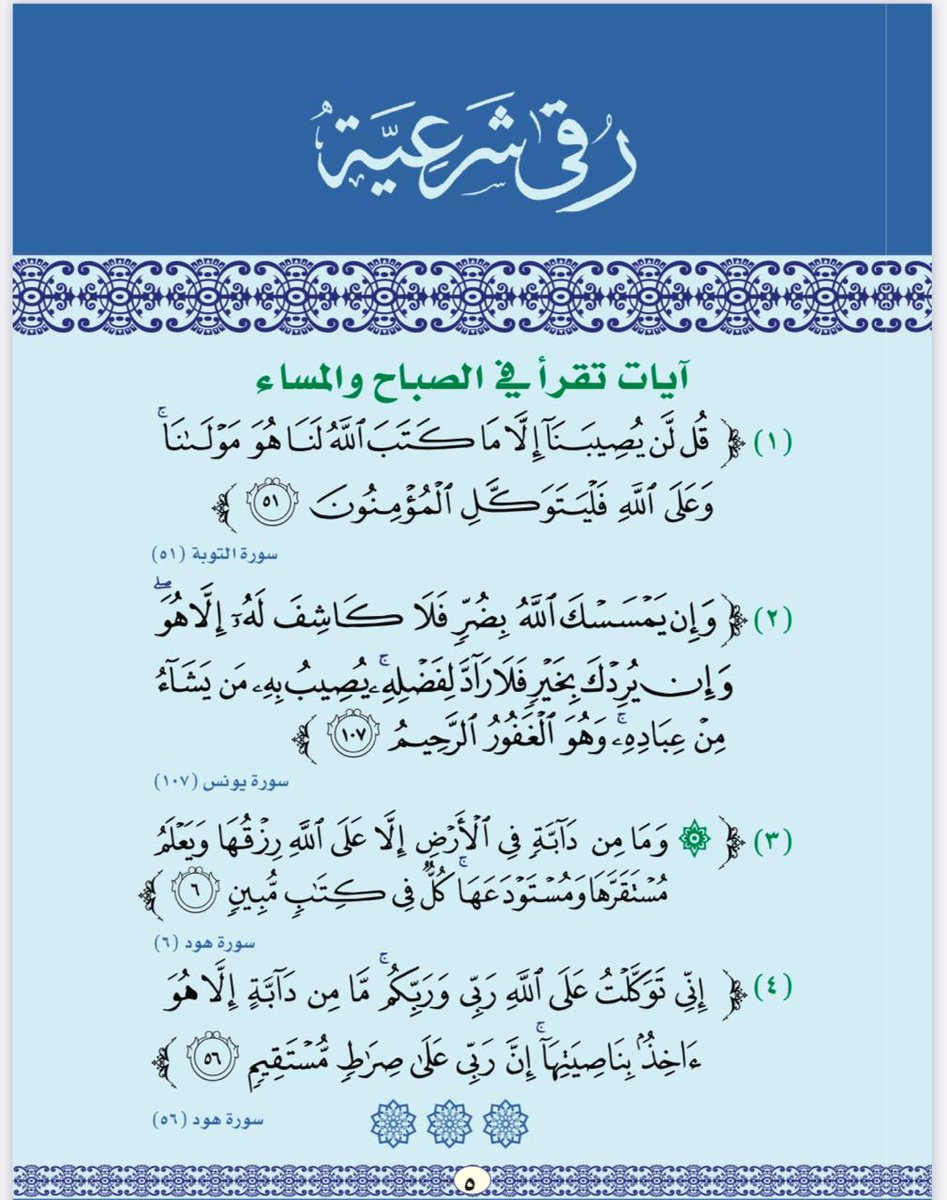 رُقى شَرعِيَّة
آيات تقرأ في الصباح والمساء
(١) ﴿ قُل لَّن يُصِيبَنَآ إِلَّا مَا كَتَبَ ٱللَّهُ لَنَا هُوَ مَوْلَىٰنَاۚ
وَعَلَى ٱللَّهِ فَلْيَتَوَكَّلِ ٱلْمُؤْمِنُونَ ٥١ ﴾
سورة التوبة (٥١)
(٢) ﴿ وَإِن يَمْسَسْكَ ٱللَّهُ بِضُرٍّ فَلَا كَاشِفَ لَهُۥٓ إِلَّا هُوَۖ
وَإِن يُرِدْكَ بِخَيْرٍ فَلَا رَآدَّ لِفَضْلِهِۦۚ يُصِيبُ بِهِۦ مَن يَشَآءُ
مِنْ عِبَادِهِۦۚ وَهُوَ ٱلْغَفُورُ ٱلرَّحِيمُ ١٠٧ ﴾
سورة يونس (١٠٧)
(٣) ﴿ ۞ وَمَا مِن دَآبَّةٍ فِى ٱلْأَرْضِ إِلَّا عَلَى ٱللَّهِ رِزْقُهَا وَيَعْلَمُ
مُسْتَقَرَّهَا وَمُسْتَوْدَعَهَاۚ كُلٌّ فِى كِتَٰبٍ مُّبِينٍ ٦ ﴾
سورة هود (٦)
(٤) ﴿ إِنِّى تَوَكَّلْتُ عَلَى ٱللَّهِ رَبِّى وَرَبِّكُمۚ مَّا مِن دَآبَّةٍ إِلَّا هُوَ
ءَاخِذٌۢ بِنَاصِيَتِهَآۚ إِنَّ رَبِّى عَلَىٰ صِرَٰطٍ مُّسْتَقِيمٍ ٥٦ ﴾
سورة هود (٥٦)
٥